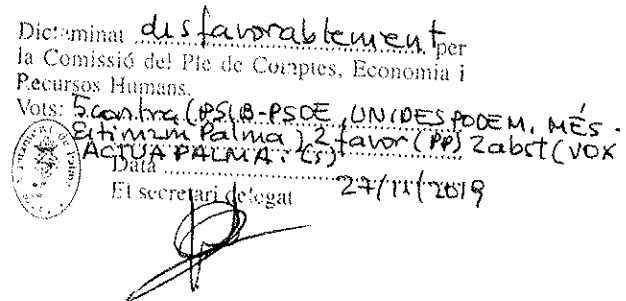 Dictaminat disfavorablement per
la Comissió del Ple de Comptes, Economia i
Recursos Humans.
Vots: 5 contra (PSIB-PSOE, UNIDES PODEM, MÉS-
Estimam Palma) 2 favor (PP) 2 abst (VOX
ACTUA PALMA i Cs)
Data 27/11/2019
El secretari delegat
Ajuntament de Palma